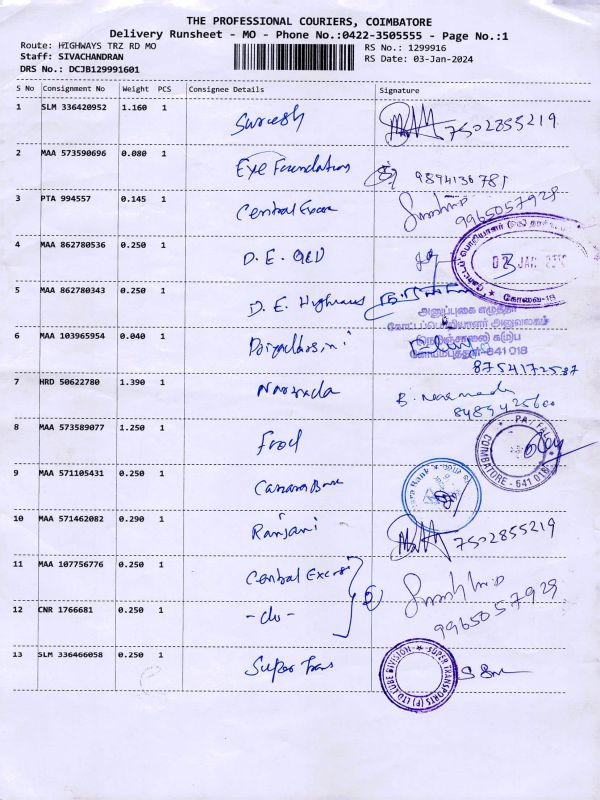 THE PROFESSIONAL COURIERS, COIMBATORE
Delivery Runsheet - MO - Phone No.:0422-3505555 - Page No.:1
Route: HIGHWAYS TRZ RD MO RS No.: 1299916
Staff: SIVACHANDRAN RS Date: 03-Jan-2024
DRS No.: DCJB129991601
S No Consignment No Weight PCS Consignee Details Signature
1 SLM 336420952 1.160 1 Suresh 7502855219
2 MAA 573590696 0.080 1 Eye Foundation 9894136781
3 PTA 994557 0.145 1 Central Excise 9965057929
4 MAA 862780536 0.250 1 D.E.
JAN
கோவை-18
5 MAA 862780343 0.250 1 D.E. Highways
அனுப்புகை எழுத்தர்
கோட்டப்பொறியாளர் அலுவலகம்
(நெடுஞ்சாலை) க(ம)ப
கோயம்புத்தூர்-641 018
6 MAA 103965954 0.040 1 8754172537
7 HRD 50622780 1.390 1 Narmada B. Narmada
8489425600
8 MAA 573589077 1.250 1
COIMBATORE - 641 018
9 MAA 571105431 0.250 1 Canara Bank
10 MAA 571462082 0.290 1 Ranjani 7502855219
11 MAA 107756776 0.250 1 Central Excise
12 CNR 1766681 0.250 1 -do- 9965057929
13 SLM 336466058 0.250 1 Super Trans
SUPER TRANSPORTS (P) LTD LUBE DIVISION